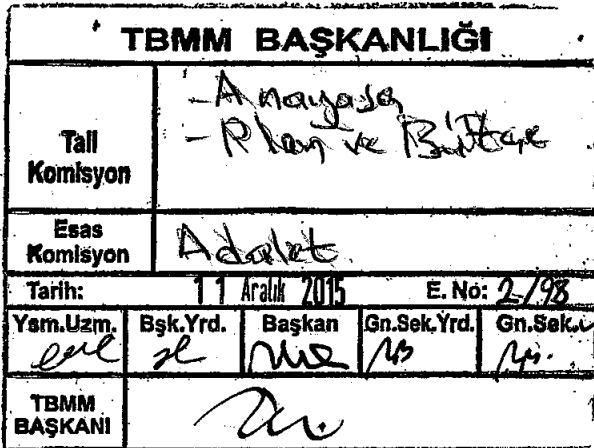 TBMM BAŞKANLIĞI
Tali
Komisyon
- Anayasa
- Plan ve Bütçe
Esas
Komisyon
Adalet
Tarih: 11 Aralık 2015 E. No: 2/98
Ysm.Uzm. Bşk.Yrd. Başkan Gn.Sek.Yrd. Gn.Sek.
TBMM
BAŞKANI